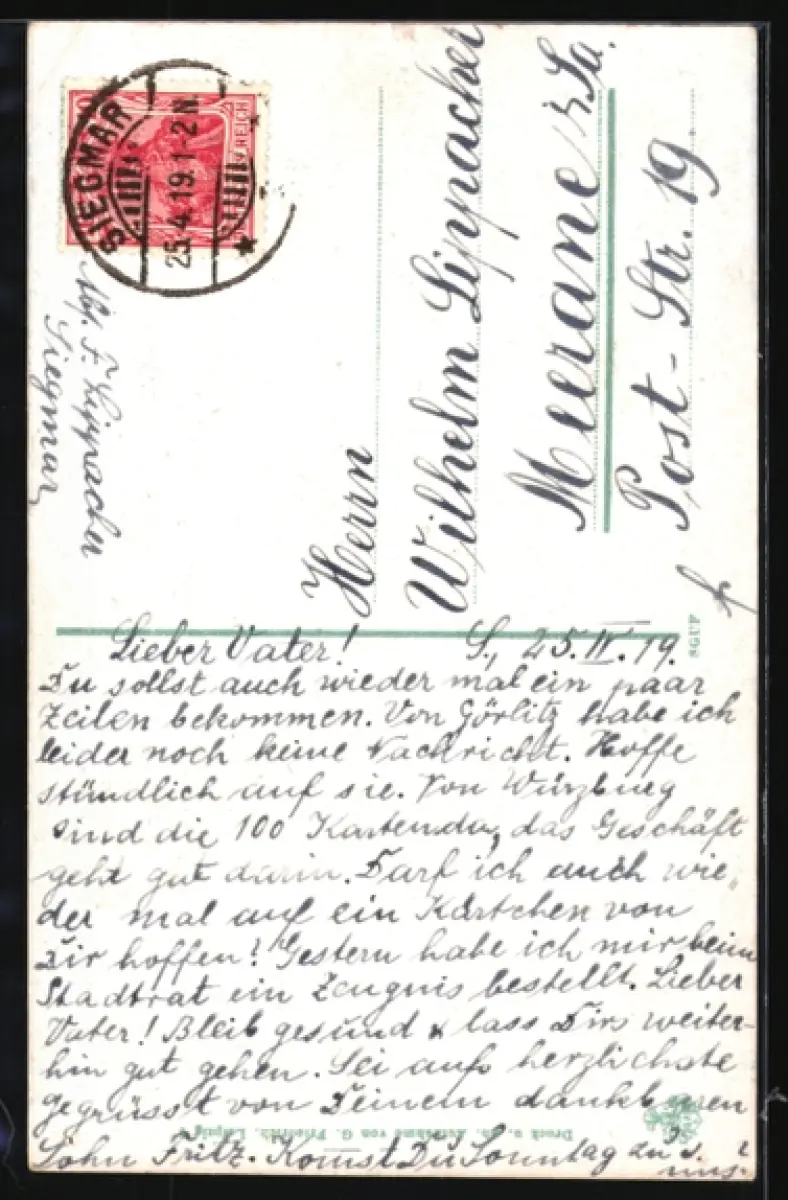 SIEGMAR
25.4.19.1-2N.
REICH
Abs. F. Lippacher
Siegmar
Herrn
Wilhelm Lippacher
Meerane i/Sa.
Post-Str. 19
8GUF
Lieber Vater! S., 25.IV.19.
Du sollst auch wieder mal ein paar
Zeilen bekommen. Von Görlitz habe ich
leider noch keine Nachricht. Hoffe
stündlich auf sie. Von Würzburg
sind die 100 Karten da, das Geschäft
geht gut darin. Darf ich auch wie„
der mal auf ein Kärtchen von
Dir hoffen? Gestern habe ich mir beim
Stadtrat ein Zeugnis bestellt. Lieber
Vater! Bleib gesund & lass Dirs weiter-
hin gut gehen. Sei aufs herzlichste
gegrüsst von Deinem dankbaren
Druck u. Aufnahme von G. Friedrich, Leipzig
Sohn Fritz. Komst Du Sonntag zu
uns?